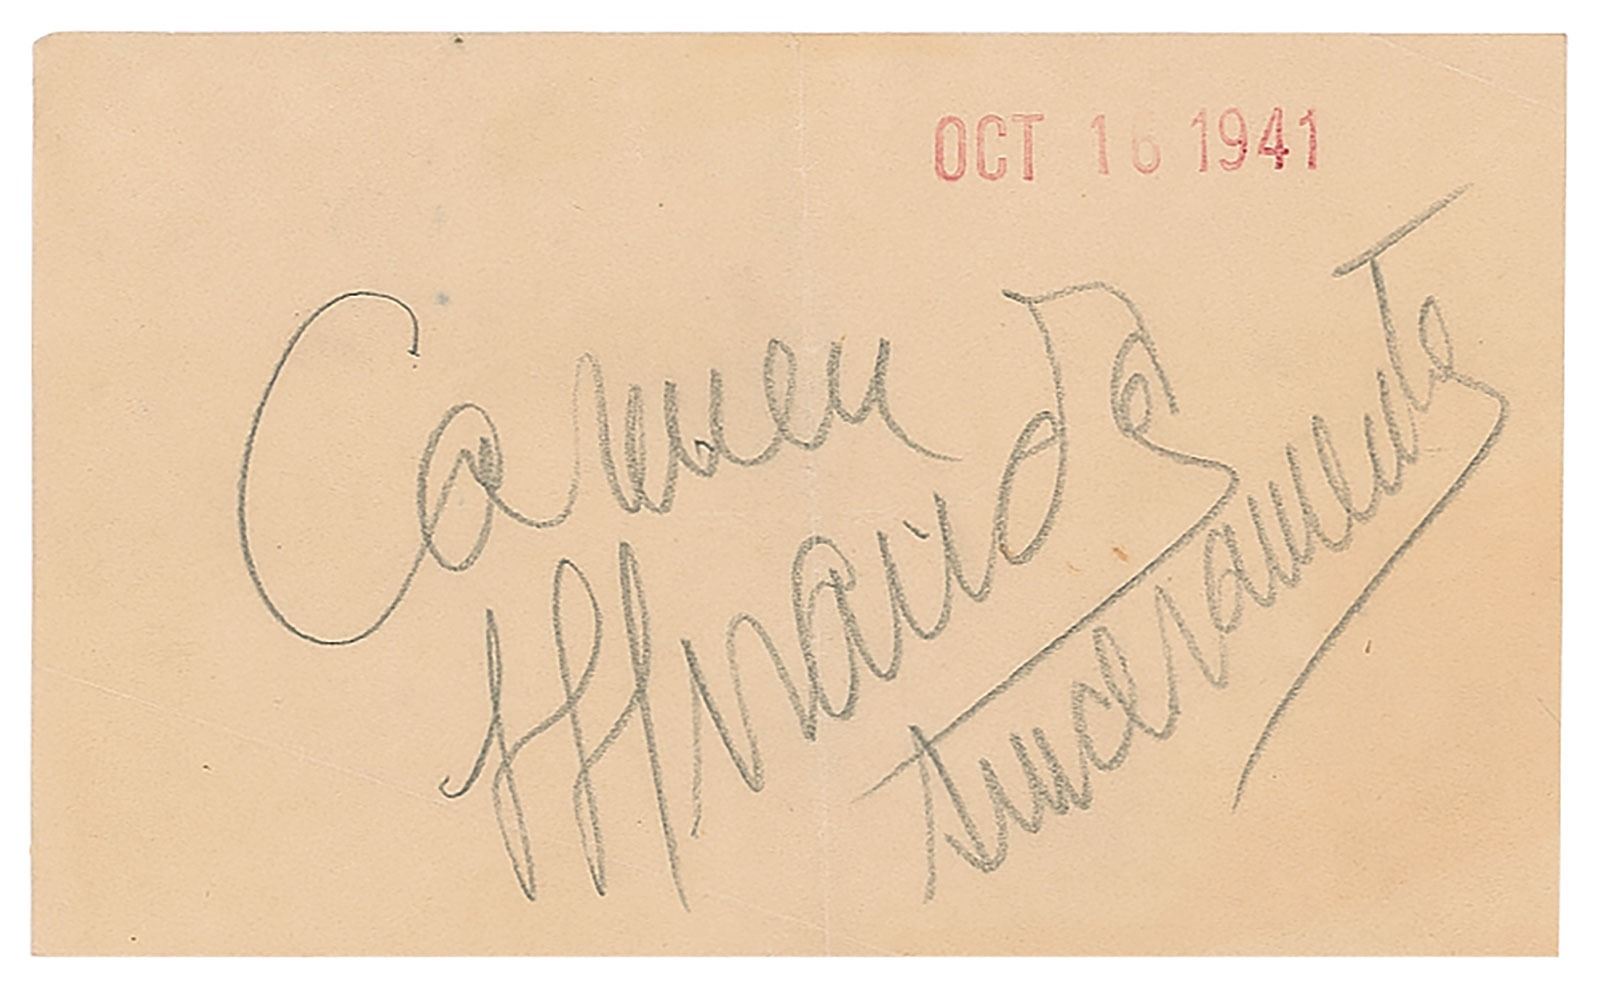 OCT 16 1941
Carmen
Miranda
sinceramente